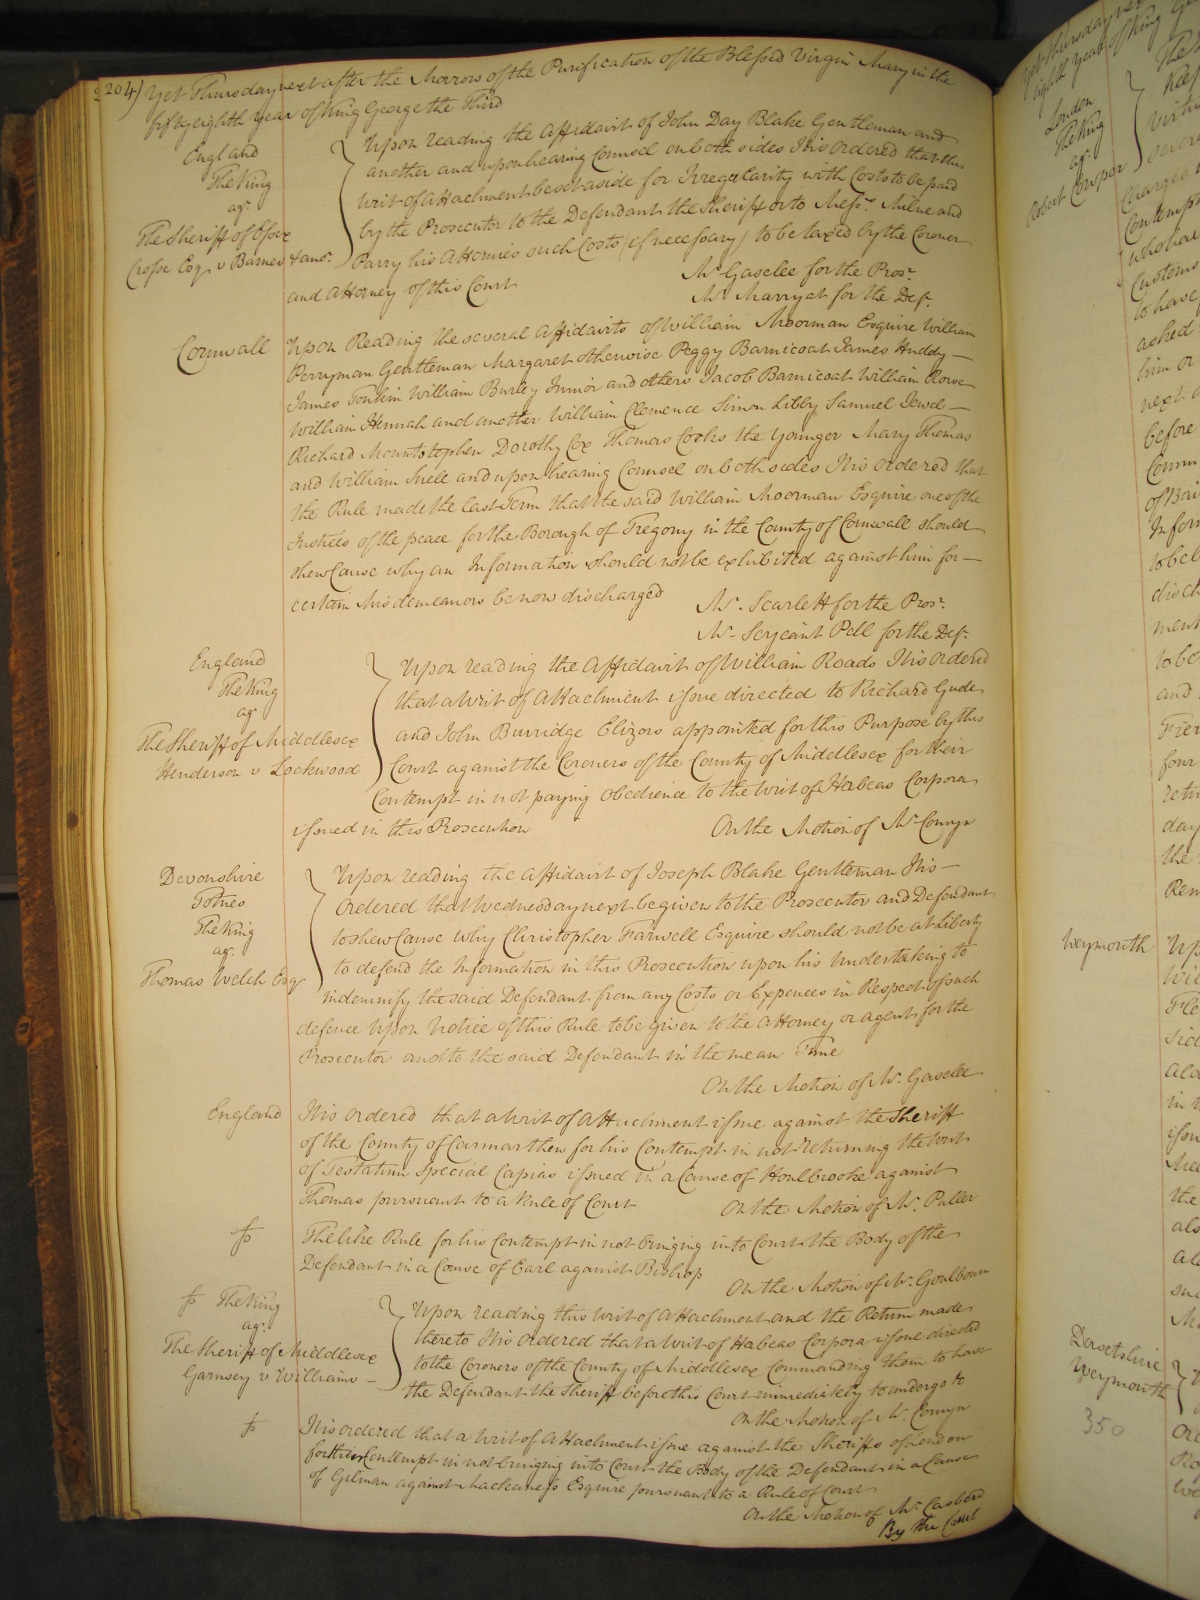 204) Yet Thursday next after the Morrow of the Purification of the Blessed Virgin Mary in the
fifty eighth year of King George the Third
England
The King
agt.
The Sheriff of Essex
Crosse Esqr. v Barnes & anor.
Upon reading the Affidavit of John Day Blake Gentleman and
another and upon hearing Counsel on both sides It is ordered that this
writ of Attachment be set aside for Irregularity with Costs to be paid
by the Prosecutor to the Defendant the Sheriff or to Messrs. Milne and
Parry his Attornies such Costs (if necessary) to be taxed by the Coroner
and Attorney of this Court
Mr. Gaselee for the Prosr.
Mr. Marryat for the Deft.
Cornwall
Upon Reading the several Affidavits of William Moorman Esquire William
Perryman Gentleman Margaret otherwise Peggy Barnicoat James Huddy
James Tonkin William Burley Junior and others Jacob Barnicoat William Rowe
William Hennah and another William Clemence Simon Libby Samuel Jewel
Richard Mountstephen Dorothy Cox Thomas Cooks the younger Mary Thomas
and William Snell and upon hearing Counsel on both sides It is Ordered that
the Rule made the last Term that the said William Moorman Esquire one of the
Justices of the peace for the Borough of Tregony in the County of Cornwall should
shew Cause why an Information should not be exhibited against him for
certain Misdemeanors be now discharged
Mr. Scarlett for the Prosr.
Mr. Serjeant Pell for the Deft.
England
The King
agt.
The Sheriff of Middlesex
Henderson v Lockwood
Upon reading the Affidavit of William Roads It is Ordered
that a writ of Attachment issue directed to Richard Gude
and John Burridge Elizors appointed for this Purpose by this
Court against the Coroners of the County of Middlesex for their
Contempt in not paying obedience to the Writ of Habeas Corpora
issued in this Prosecution
On the Motion of Mr. Comyn
Devonshire
Totnes
The King
agt.
Thomas Welch Esqr.
Upon reading the Affidavit of Joseph Blake Gentleman It is
Ordered that Wednesday next be given to the Prosecutor and Defendant
to shew Cause why Christopher Farwell Esquire should not be at Liberty
to defend the Information in this Prosecution upon his Undertaking to
indemnify the said Defendant from any Costs or Expences in Respect of such
defence Upon Notice of this Rule to be given to the Attorney or agent for the
Prosecutor and to the said Defendant in the mean Time
On the Motion of Mr. Gaselee
England
It is ordered that a Writ of Attachment issue against the Sheriff
of the County of Carmarthen for his Contempt in not returning the Writ
of Testatum Special Capias issued in a Cause of Houlbrooke against
Thomas pursuant to a Rule of Court
On the Motion of Mr. Puller
The like Rule for his Contempt in not bringing into Court the Body of the
Defendant in a Cause of Earl against Bishop
On the Motion of Mr. Goulbourn
The King
agt.
The Sheriff of Middlesex
Garnsey v Williams
Upon reading this Writ of Attachment and the Return made
thereto It is Ordered that a Writ of Habeas Corpora issue directed
to the Coroners of the County of Middlesex Commanding them to have
the Defendant the Sheriff before this Court immediately to undergo &c
On the Motion of Mr. Comyn
It is ordered that a Writ of Attachment issue against the Sheriffs of London
for their Contempt in not bringing into Court the Body of the Defendant in a Cause
of Gilman against Esquire pursuant to a Rule of Court
On the Motion of Mr. Casberd
By the Court
London
The King
agt.
Robert Cowper
Weymouth
Dorsetshire
Weymouth
350